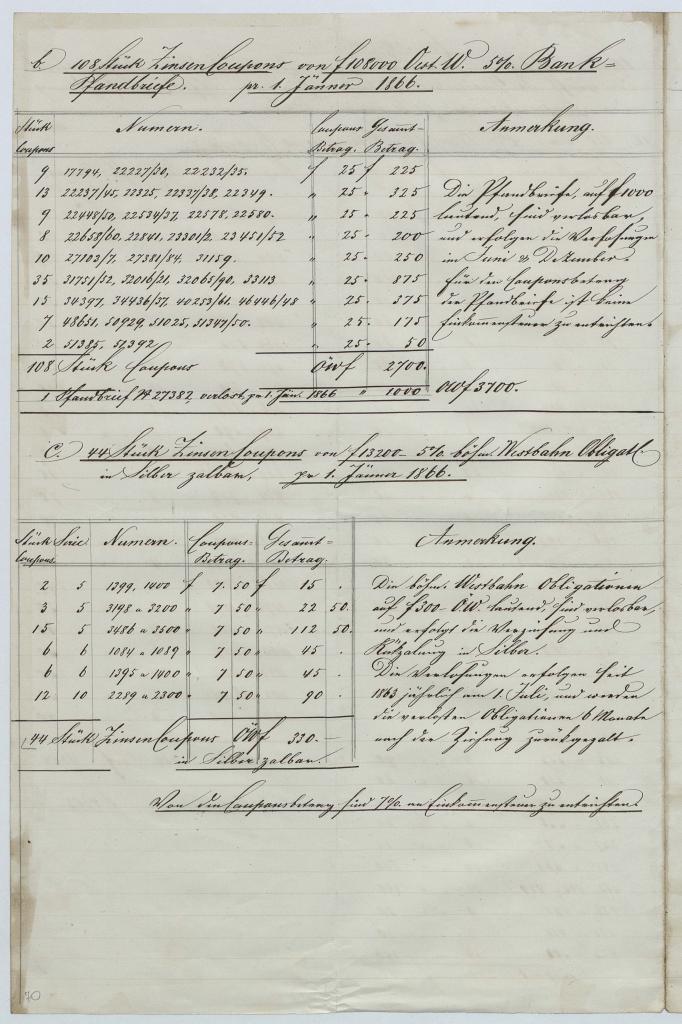 b. 108 Stück Zinsen Coupons von f 108000 Oest. W. 5%. Bank=
Pfandbriefe. pr. 1. Jänner 1866.
Stück Coupons Numern. Coupons Betrag. Gesamt- Betrag. Anmerkung.
9 17794, 22227/30, 22232/35. f 25 f 225
13 22237/45, 22325, 22337/38, 22349. " 25 " 325 Die Pfandbriefe, auf f 1000
9 22448/50, 22534/37, 22578, 22580. " 25 " 225 lautend, sind verlosbar,
8 22658/60, 22841, 23301/2, 23451/52 " 25 " 200 und erfolgen die Verlosungen
10 27103/7, 27381/84, 31159. " 25 " 250 im Juni & Dezember.
35 31751/52, 32016/21, 32065/90, 33113 " 25 " 875 Für den Couponsbetrag
15 34397, 34436/37, 40253/61, 46446/48 " 25 " 375 der Pfandbriefe ist keine
7 48651, 50929, 51025, 51347/50. " 25 " 175 Einkommensteuer zu entrichten.
2 51385, 51392 " 25 " 50
108 Stück Coupons ÖWf 2700.
1 Pfandbrief № 27382, verlost, pr 1. Jän. 1866 " 1000 ÖWf 3700.
C. 44 Stück Zinsen Coupons von f 13200 – 5%. böhm. Westbahn Obligat.
in Silber zalbar, pr 1. Jänner 1866.
Stück Coupons. Serie Numern. Coupons- Betrag. Gesamt- Betrag. Anmerkung.
2 5 1399, 1400 f 7. 50 f 15 . Die böhm. Westbahn Obligationen
3 5 3198 a 3200 " 7 50 " 22 50. auf f 300 – ÖW. lautend, sind verlosbar,
15 5 3486 a 3500 " 7 50 " 112 50. und erfolgt die Verzinsung und
6 6 1084 a 1089 " 7 50 " 45 . Rükzalung in Silber.
6 6 1395 a 1400 " 7 50 " 45 . Die Verlosungen erfolgen seit
12 10 2289 a 2300 " 7 50 " 90 . 1863 jährlich am 1. Juli, und werden
die verlosten Obligationen 6 Monate
44 Stück Zinsen Coupons ÖWf 330.– nach der Ziehung zurükgezalt.
in Silber zalbar.
Von den Couponsbetrag sind 7%. an Einkommensteuer zu entrichten.
70